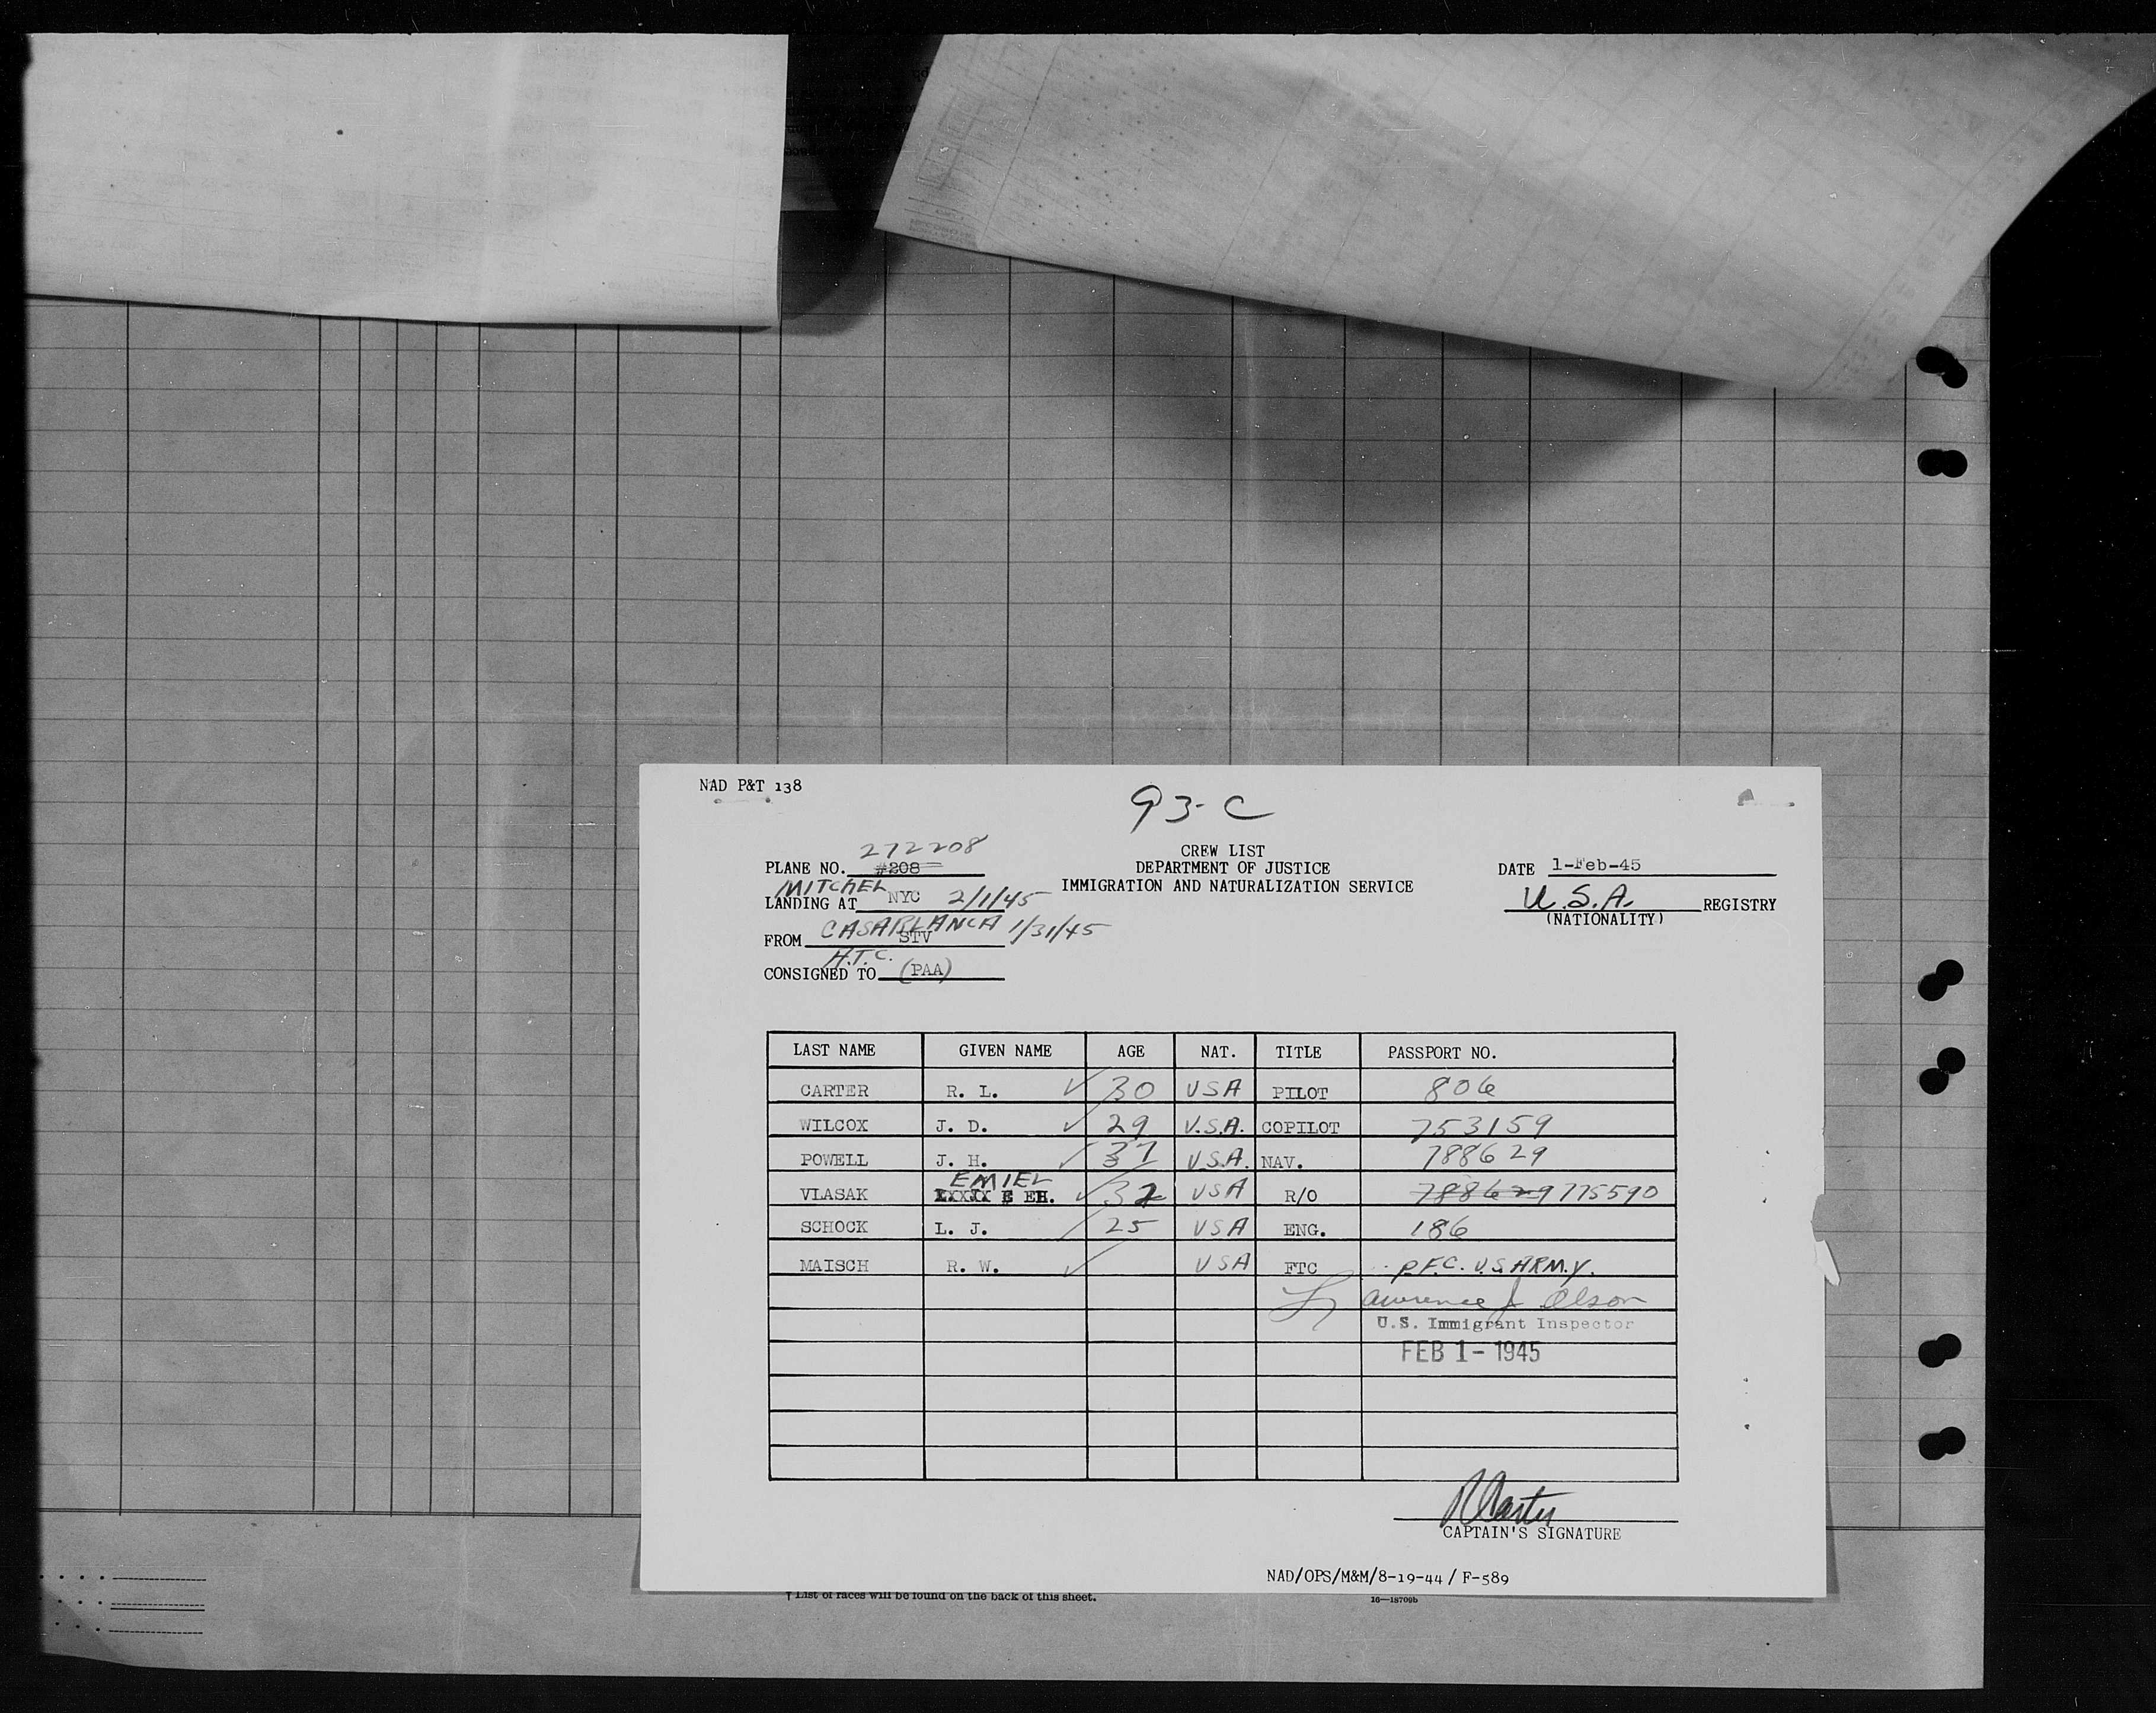 NAD P&T 138
93-C
272208
PLANE NO. #208
CREW LIST
DEPARTMENT OF JUSTICE
IMMIGRATION AND NATURALIZATION SERVICE
DATE 1-Feb-45
MITCHEL
LANDING AT NYC 2/1/45
U.S.A. REGISTRY
(NATIONALITY)
CASABLANCA 1/31/45
FROM STV
A.T.C.
CONSIGNED TO (PAA)
LAST NAME GIVEN NAME AGE NAT. TITLE PASSPORT NO.
CARTER R. L. 30 USA PILOT 806
WILCOX J. D. 29 U.S.A. COPILOT 753159
POWELL J. H. 37 U.S.A. NAV. 788629
EMIEL
VLASAK 32 USA R/O 788629 775590
SCHOCK L. J. 25 USA ENG. 186
MAISCH R. W. USA FTC P.F.C. U.S. ARMY.
Lawrence J Olson
U.S. Immigrant Inspector
FEB 1 - 1945
R Carter
CAPTAIN'S SIGNATURE
NAD/OPS/M&M/8-19-44 / F-589
† List of races will be found on the back of this sheet.
16—18709b